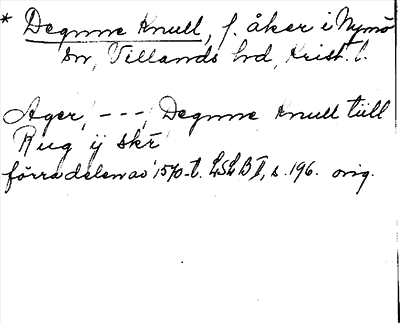 * Degnne Knull, f. åker i Nymö
sn, Villands hd, Krist. l.
Ager, ---, Degnne Knull tüll
Rug ij skr
förra delen av 1570-t. LSLB II, s. 196. orig.